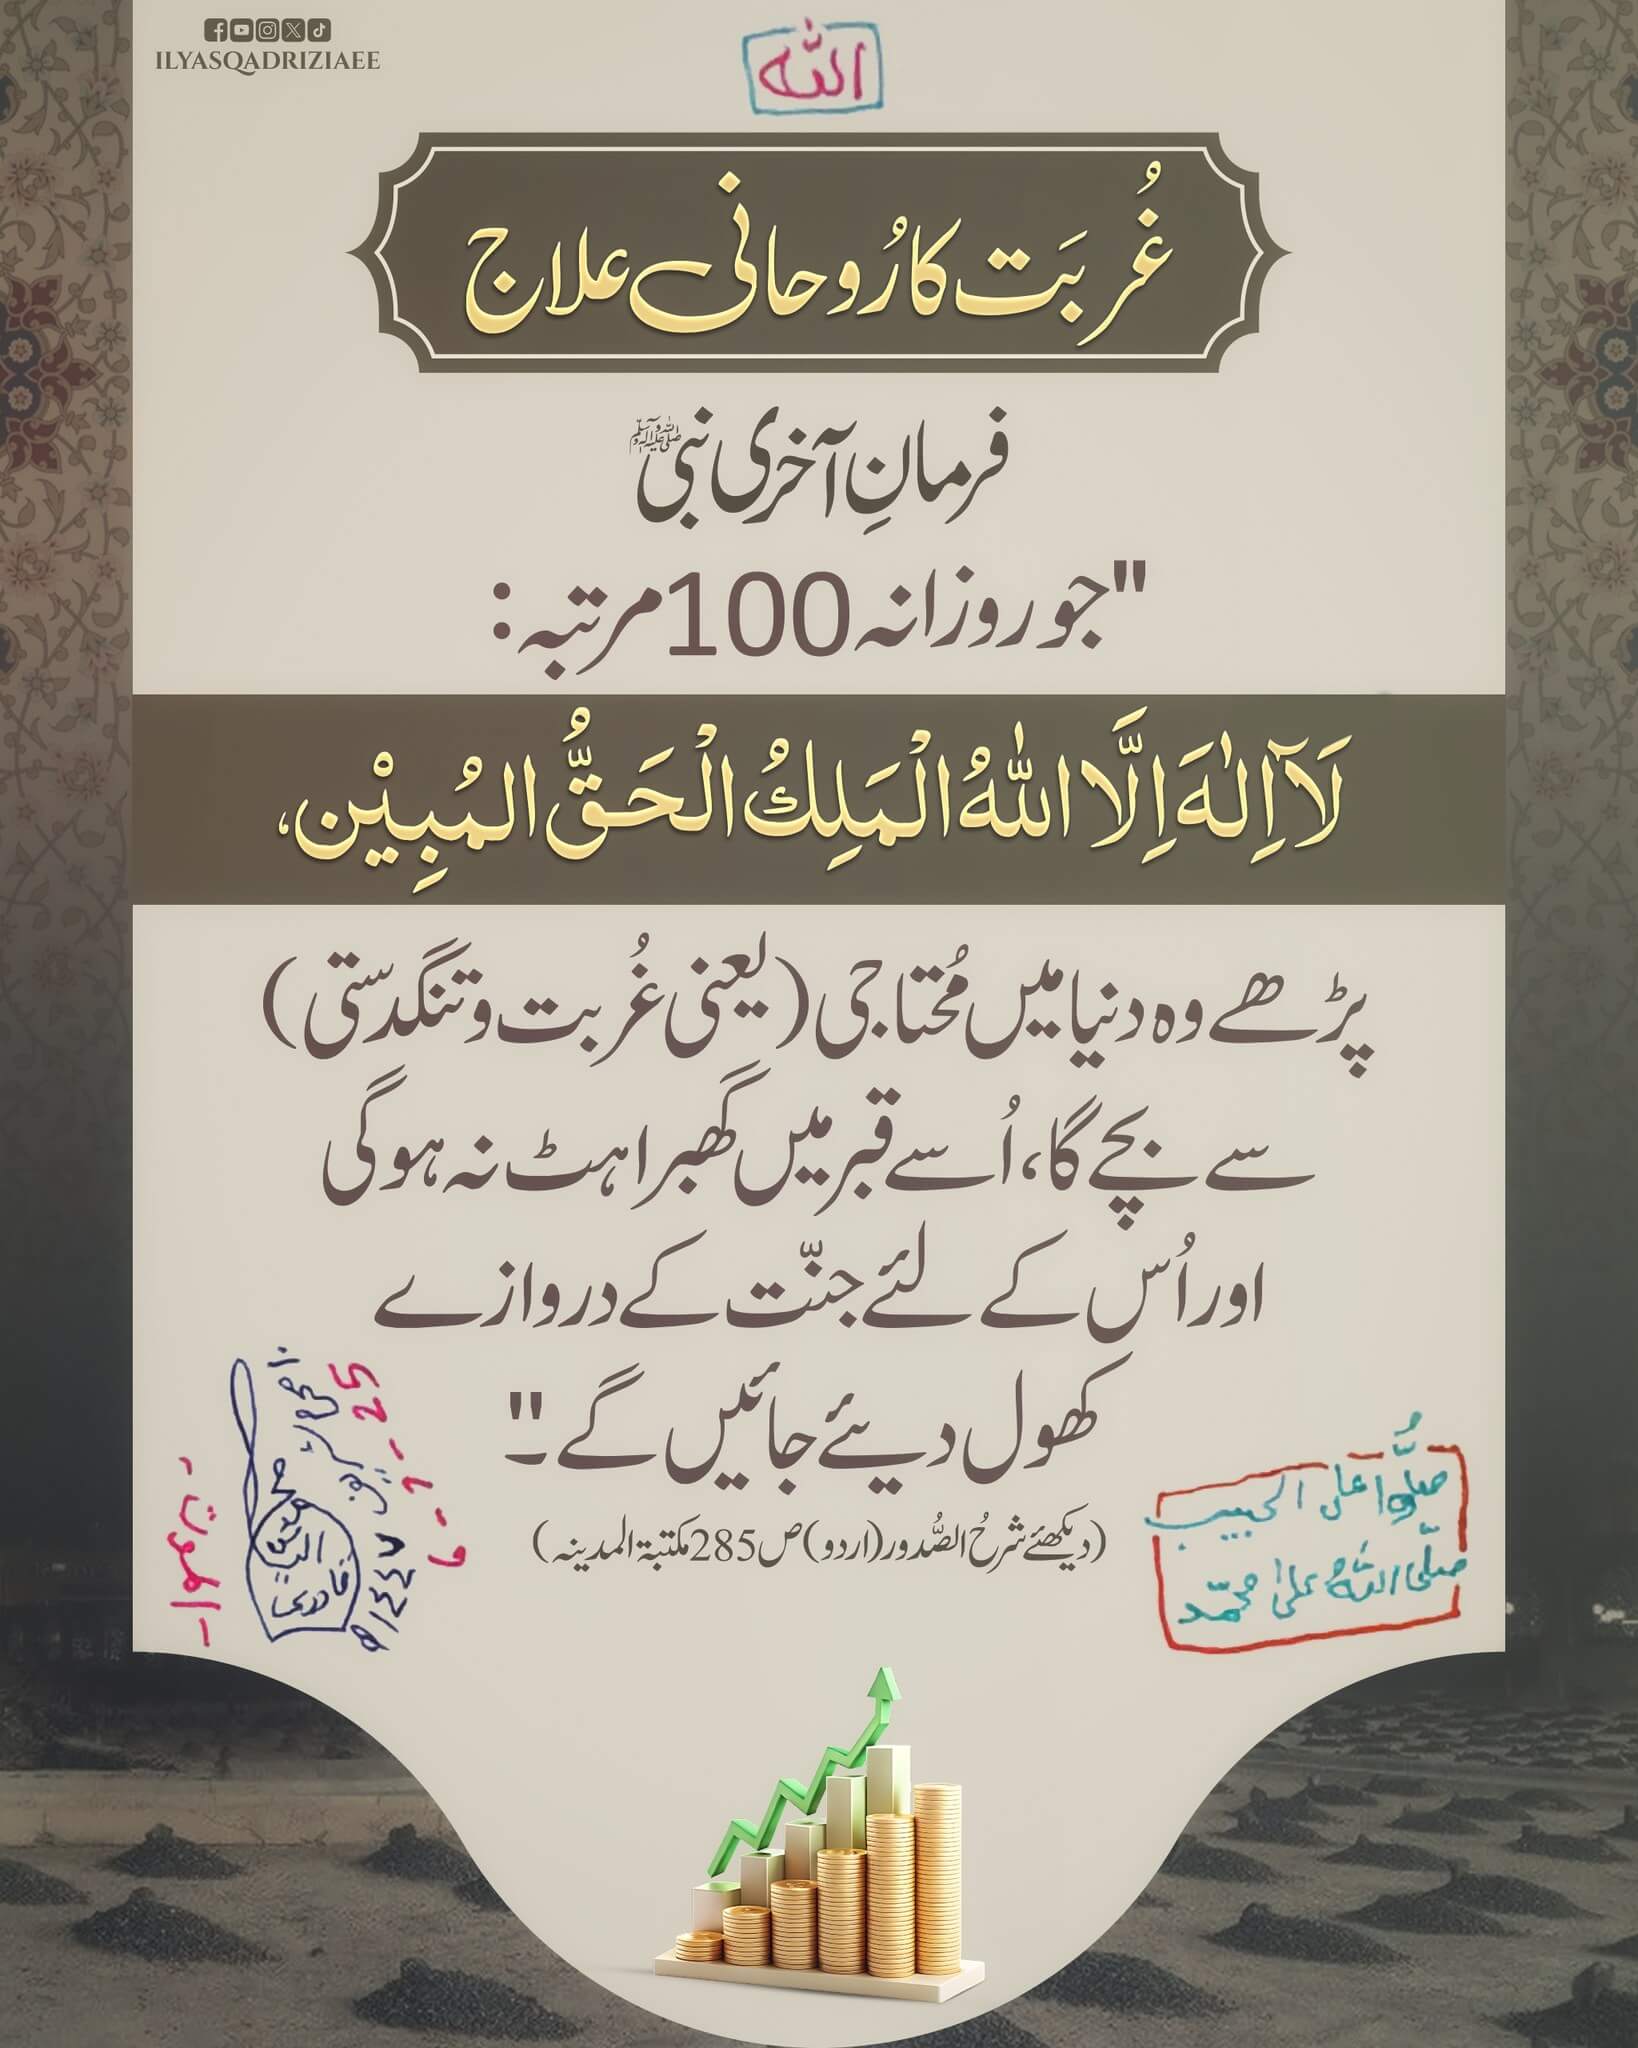 ILYASQADRIZIAEE
الله
غُربَت کا رُوحانی علاج
فرمانِ آخری نبی ﷺ
"جو روزانہ 100 مرتبہ:
لَآ اِلٰہَ اِلَّا اللّٰہُ الْمَلِکُ الْحَقُّ الْمُبِیْن،
پڑھے وہ دنیا میں مُحتاجی (یعنی غُربت و تنگدستی)
سے بچے گا، اُسے قبر میں گھبراہٹ نہ ہوگی
اور اُس کے لئے جنّت کے دروازے
کھول دیئے جائیں گے۔"
(دیکھئے شرحُ الصُّدور (اردو) ص 285 مکتبۃ المدینہ)
صلُّوا علی الحبیب
صلَّی اللہُ علٰی محمّد
محمد الیاس قادری
الموت